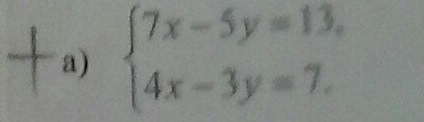 + a) { 7x − 5y = 13,
4x − 3y = 7.